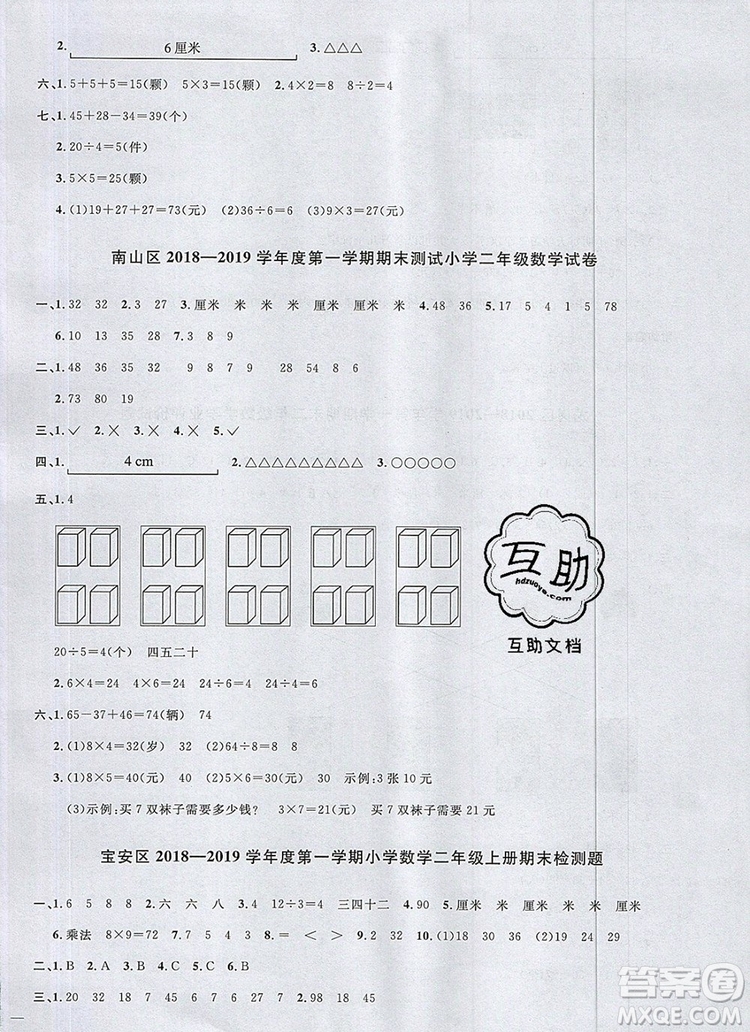 2. 6厘米 3.△△△
六、1.5+5+5=15(颗) 5×3=15(颗) 2.4×2=8 8÷2=4
七、1.45+28-34=39(个)
2.20÷4=5(件)
3.5×5=25(颗)
4.(1)19+27+27=73(元) (2)36÷6=6 (3)5×7=35(元)
南山区 2018—2019 学年度第一学期期末测试小学二年级数学试卷
一、1.32 32 2.3 27 3.厘米 米 米 米 厘米 厘米 4.48 36 5.17 5 4 1 5 78
6.10 20 20 5 7.9 9 8.> < = > > < 9.1 3 8 9
二、1.48 36 35 32 9 4 9 9 28 54 8 8
2.73 80 19
三、1.✓ 2.× 3.× 4.× 5.✓
四、1. 4 cm 2.△△△△△△△△△ 3.○○○○○
五、1.4
20÷5=4(个) 四五二十
2.6×4=24 4×6=24 24÷4=6 24÷6=4
六、1.65-37+46=74(辆) 74
2.(1)8×4=32(岁) 32 (2)64÷8=8 8
3.(1)8×5=40(元) 40 (2)20 20 示例:3张10元
(3)示例:买7双袜子需要多少钱? 3×7=21(元) 买7双袜子需要21元
宝安区 2018—2019 学年度第一学期小学数学二年级上册期末检测题
一、1.6 5 8 8 2.六 六 八 3.4 12÷3=4 三四十二 4.90 5.厘米 米 米 厘米 厘米
6.乘法 8×9=72 7.5 4 3 8.= < > 9.2 4 10.(1)20 36 (2)30 29
二、1.B 2.A 3.B 4.C 5.C 6.B
三、1.20 32 18 7 18 4 7 7 2.98 15 45
互助
hdzuoye.com
互助文档
答案圈
MXQE.COM